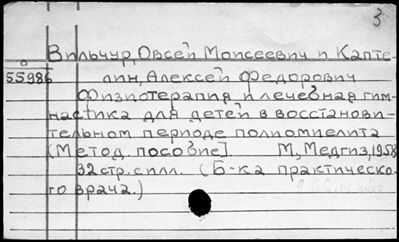 3
Вильчур, Овсей Моисеевич и Капте
55986 лин, Алексей Федорович
Физиотерапия и лечебная гим-
настика для детей в восстанови-
тельном периоде полиомиелита
(Метод. пособие]. М, Медгиз, 1958
32 стр. с илл. (Б-ка практическо-
го врача.)